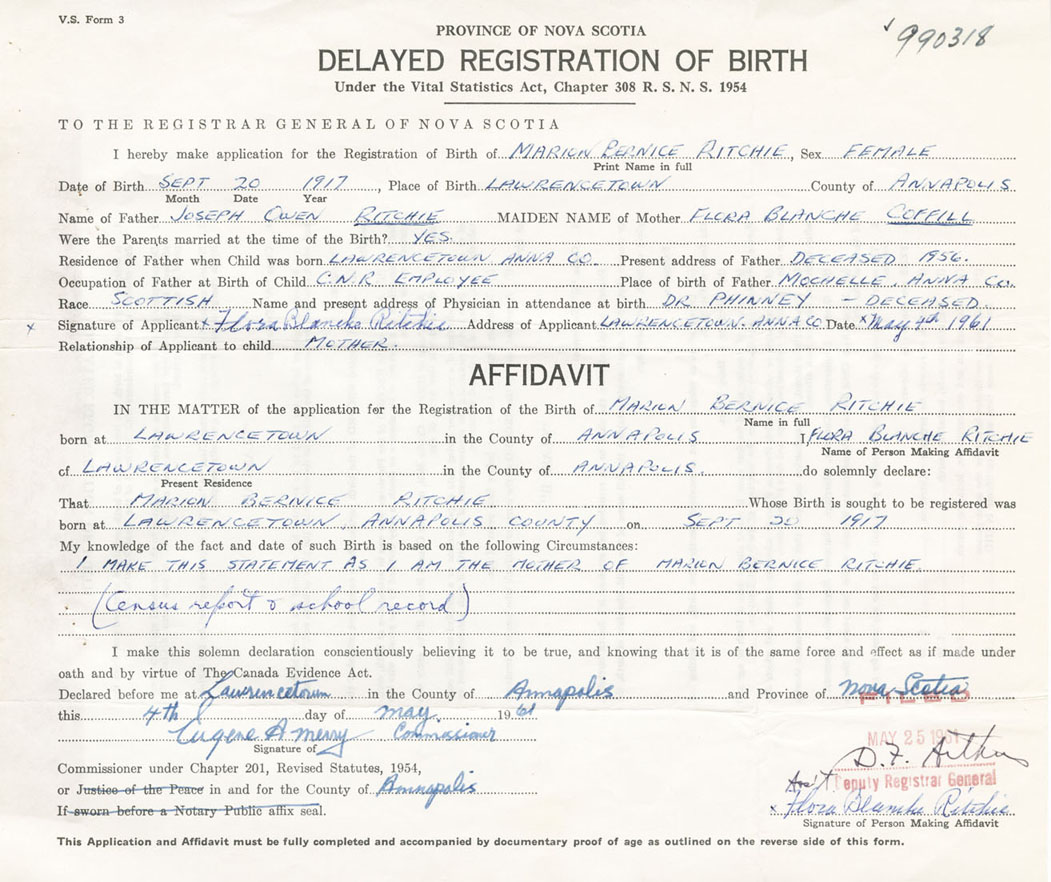 V.S. Form 3
990318
PROVINCE OF NOVA SCOTIA
DELAYED REGISTRATION OF BIRTH
Under the Vital Statistics Act, Chapter 308 R. S. N. S. 1954
TO THE REGISTRAR GENERAL OF NOVA SCOTIA
I hereby make application for the Registration of Birth of MARION BERNICE RITCHIE, Sex FEMALE
Print Name in full
Date of Birth SEPT 20 1917, Place of Birth LAWRENCETOWN County of ANNAPOLIS
Month Date Year
Name of Father JOSEPH OWEN RITCHIE MAIDEN NAME of Mother FLORA BLANCHE COFFILL
Were the Parents married at the time of the Birth? YES.
Residence of Father when Child was born LAWRENCETOWN ANNA CO. Present address of Father DECEASED 1956.
Occupation of Father at Birth of Child C.N.R EMPLOYEE Place of birth of Father MOCHELLE, ANNA Co.
Race SCOTTISH Name and present address of Physician in attendance at birth DR PHINNEY - DECEASED
x Signature of Applicant x Flora Blanche Ritchie Address of Applicant LAWRENCETOWN. ANNA CO. Date x May 4th 1961
Relationship of Applicant to child MOTHER.
AFFIDAVIT
IN THE MATTER of the application for the Registration of the Birth of MARION BERNICE RITCHIE
Name in full
born at LAWRENCETOWN in the County of ANNAPOLIS I FLORA BLANCHE RITCHIE
Name of Person Making Affidavit
of LAWRENCETOWN in the County of ANNAPOLIS. do solemnly declare:
Present Residence
That MARION BERNICE RITCHIE Whose Birth is sought to be registered was
born at LAWRENCETOWN, ANNAPOLIS COUNTY on SEPT 20 1917
My knowledge of the fact and date of such Birth is based on the following Circumstances:
I MAKE THIS STATEMENT AS I AM THE MOTHER OF MARION BERNICE RITCHIE.
(Census report & school record)
I make this solemn declaration conscientiously believing it to be true, and knowing that it is of the same force and effect as if made under
oath and by virtue of The Canada Evidence Act.
Declared before me at Lawrencetown in the County of Annapolis and Province of Nova Scotia
FILED
this 4th day of may. 1961
MAY 25 1961
Eugene A Commissioner
Signature of
D.F.
Commissioner under Chapter 201, Revised Statutes, 1954,
Deputy Registrar General
or Justice of the Peace in and for the County of Annapolis
x Flora Blanche Ritchie
If sworn before a Notary Public affix seal.
Signature of Person Making Affidavit
This Application and Affidavit must be fully completed and accompanied by documentary proof of age as outlined on the reverse side of this form.